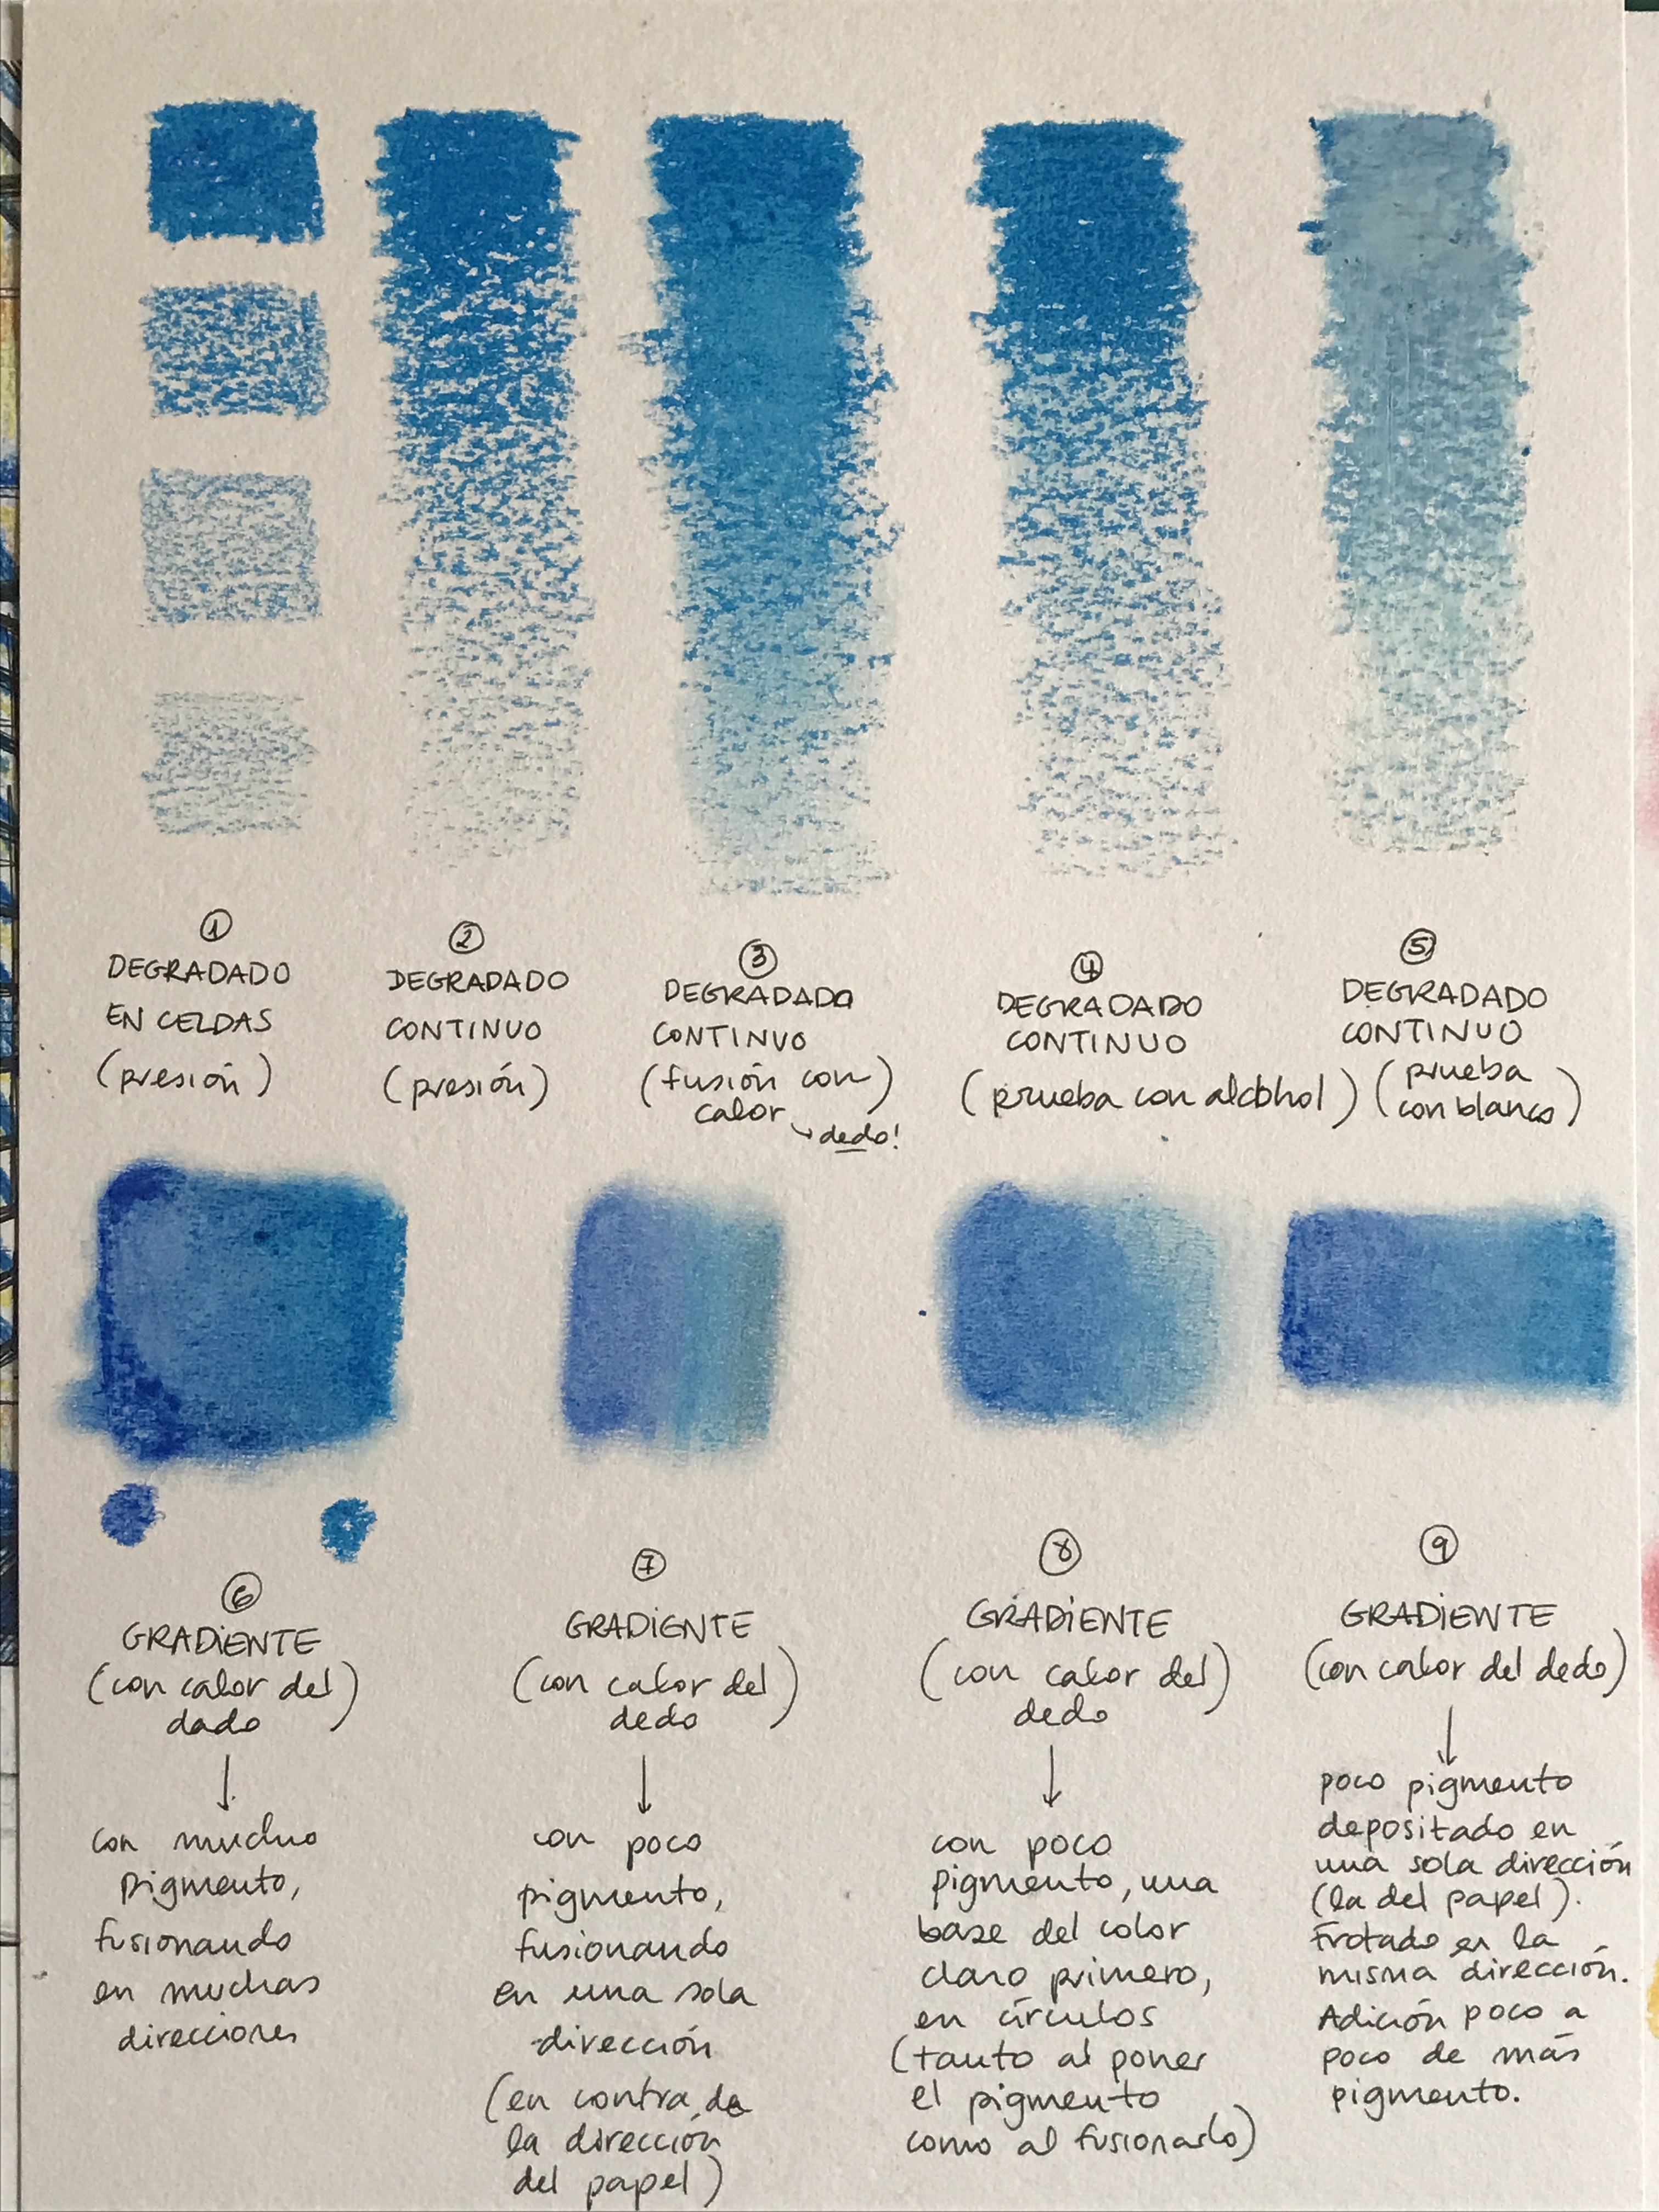 ①
DEGRADADO
EN CELDAS
(presión)
②
DEGRADADO
CONTINUO
(presión)
③
DEGRADADO
CONTINUO
(fusión con
calor
↘ dedo!)
④
DEGRADADO
CONTINUO
(prueba con alcohol)
⑤
DEGRADADO
CONTINUO
(prueba
con blanco)
⑥
GRADIENTE
(con calor del
dado)
↓
con mucho
pigmento,
fusionando
en muchas
direcciones
⑦
GRADIENTE
(con calor del
dedo)
↓
con poco
pigmento,
fusionando
en una sola
dirección
(en contra de
la dirección
del papel)
⑧
GRADIENTE
(con calor del
dedo)
↓
con poco
pigmento, una
base del color
claro primero,
en círculos
(tanto al poner
el pigmento
como al fusionarlo)
⑨
GRADIENTE
(con calor del dedo)
↓
poco pigmento
depositado en
una sola dirección
(la del papel).
Frotado en la
misma dirección.
Adición poco a
poco de más
pigmento.